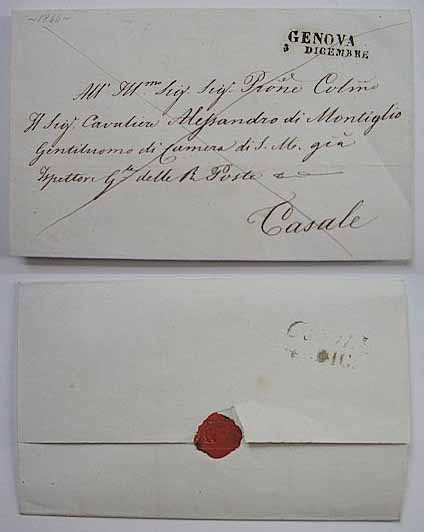 ~1844~
GENOVA
3 DICEMBRE
All' Ill.mo Sig. Sig. Prone Colmo
Il Sig. Cavaliere Alessandro di Montiglio
Gentiluomo di Camera di S. M. già
Ispettore G.le delle R. Poste
Casale
DIC.